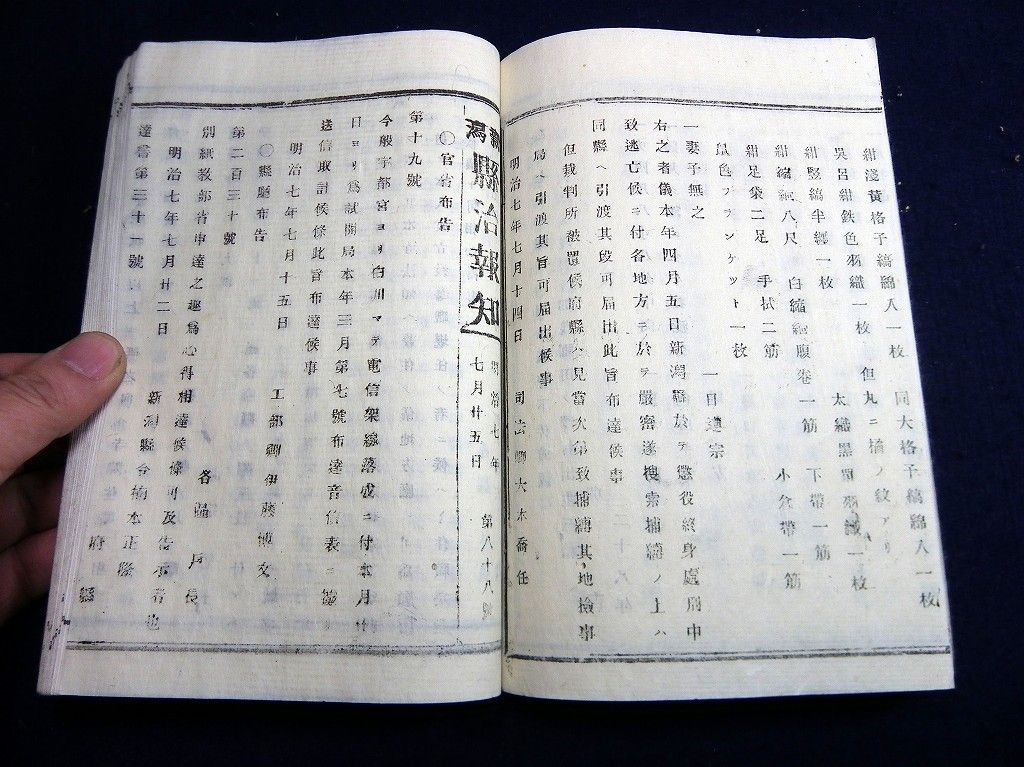 紺淺黄格子縞綿入一枚　同大格子縞綿入一枚
呉呂紺鉄色羽織一枚　但丸ニ橘ノ紋アリ
紺竪縞半纏一枚　太織黒單羽織一枚
紺縮緬八尺　白縮緬腹巻一筋　下帶一筋
紺足袋二足　手拭二筋　小倉帶一筋
鼠色フランケット一枚
一妻子無之　一日蓮宗
右之者儀本年四月五日新潟縣於テ懲役終身處刑中
致逃亡候ニ付各地方ニ於テ嚴密遂搜索捕縛ノ上ハ
同縣ヘ引渡其段可届出此旨布達候事
但裁判所被置候府縣ハ見當次第致捕縛其地檢事
局ヘ引渡其旨可届出候事
明治七年七月十四日　司法卿大木喬任
新潟縣治報知　明治七年七月廿五日　第八十八號
○官省布告
第十九號
今般宇都宮ヨリ白川マテ電信架線落成ニ付本月廿
日ヨリ爲試開局本年三月第七號布達音信表ニ
送信取計候條此旨布達候事
明治七年七月十五日　工部卿伊藤博文
○縣廳布告
第二百三十號
各區戸長
別紙教部省申達之趣爲心得相達候條可及告示者也
明治七年七月廿二日　新潟縣令楠本正隆
達書第三十一號　府縣